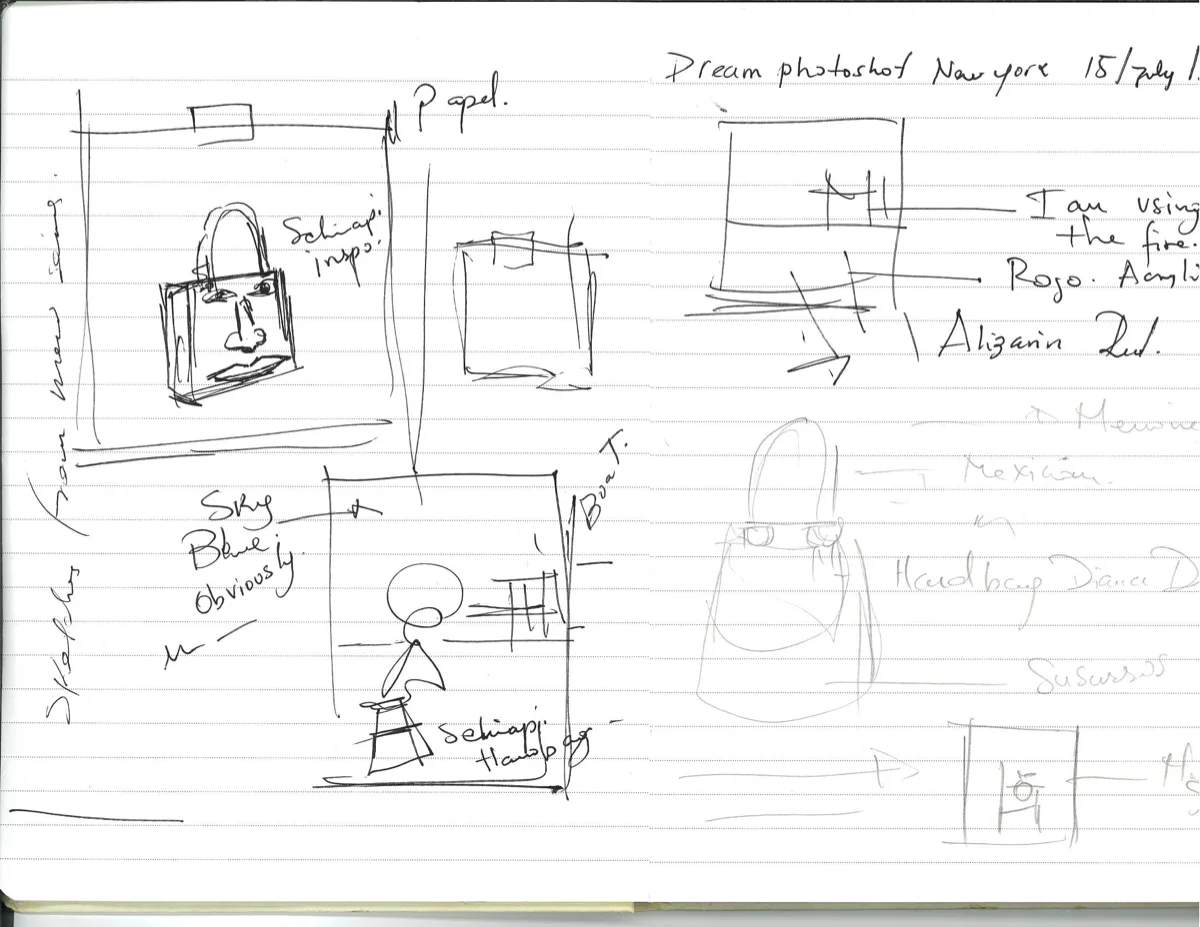 Papel.
Schiapi
inspo.
Sketches from mew
Sky
Blue;
obviously.
Boat.
Schiapi
Handbag
Dream photoshot New york 15/July/
I am using
the fire.
Rojo. Acryli
Alizarin Red.
Mexican
Handbag Diana D
Susurros